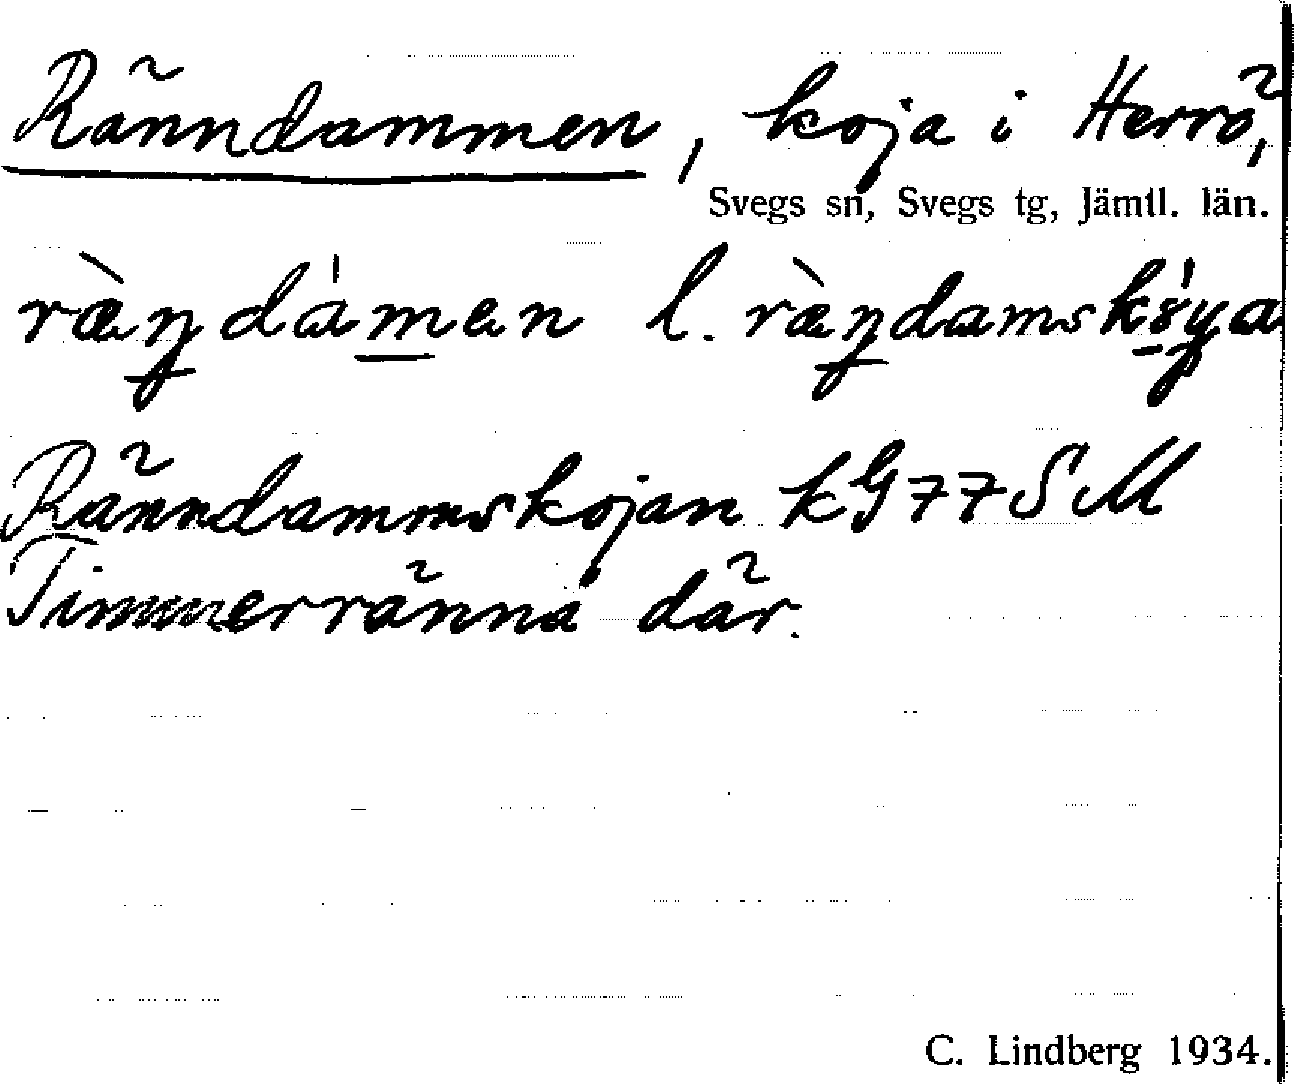 Ränndammen, koja i Herrö,
Svegs sn, Svegs tg, Jämtl. län.
l.
Ränndammskojan kG77SM
Timmerränna där.
C. Lindberg 1934.